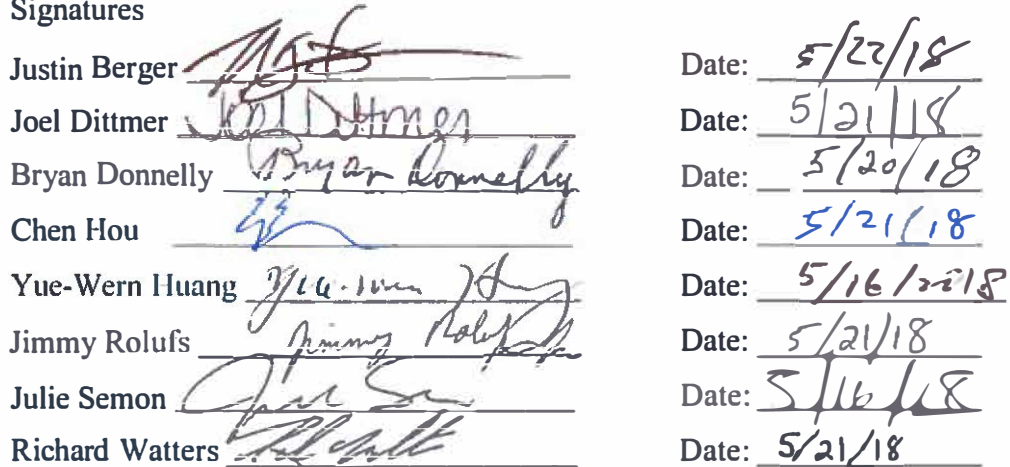 Signatures
Justin Berger Date: 5/22/18
Joel Dittmer Joel Dittmer Date: 5/21/18
Bryan Donnelly Bryan Donnelly Date: 5/20/18
Chen Hou Date: 5/21/18
Yue-Wern Huang Yue-Wern Huang Date: 5/16/2018
Jimmy Rolufs Jimmy Rolufs Date: 5/21/18
Julie Semon Date: 5/16/18
Richard Watters Date: 5/21/18